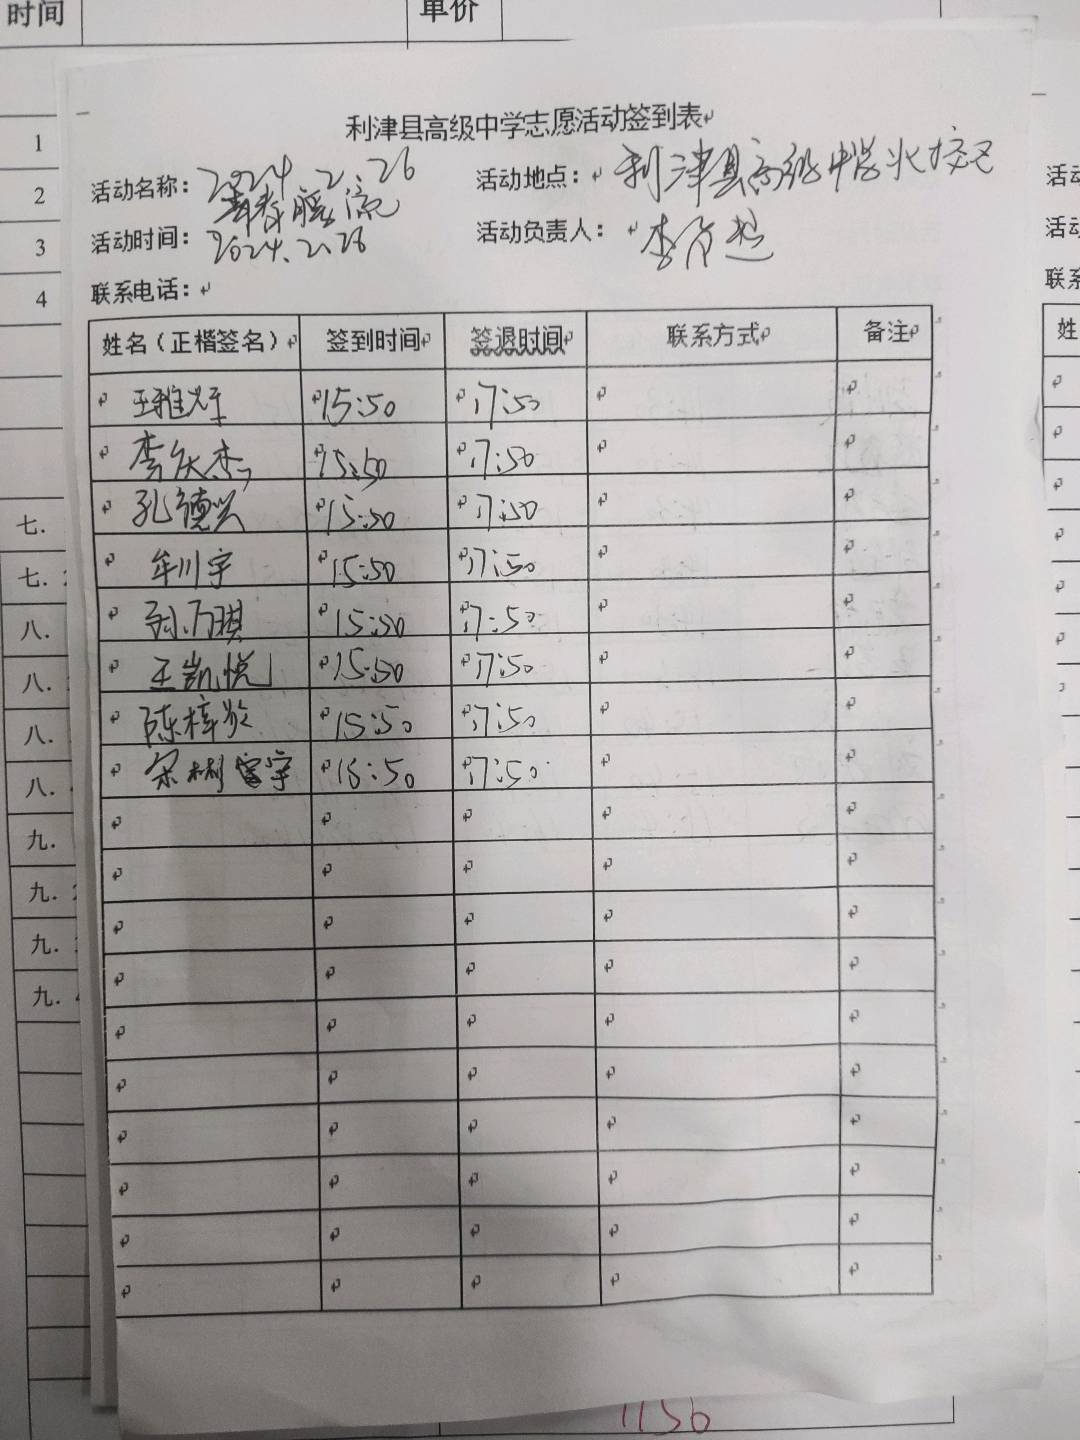 时间 单价
利津县高级中学志愿活动签到表
活动名称： 2024.2.26 活动地点： 利津县高级中学北校区
青春暖流
活动时间： 2024.2.26 活动负责人： 李
联系电话：
姓名（正楷签名） 签到时间 签退时间 联系方式 备注
王雅 15:50 17:50
李庆杰 15:50 17:50
孔德兴 15:50 17:50
牟川宇 15:50 17:50
孙乃琪 15:50 17:50
王凯悦 15:50 17:50
陈梓 15:50 17:50
宋彬宇 15:50 17:50
1
2
3
4
七.
七.
八.
八.
八.
八.
九.
九.
九.
九.
活动
活动
联系
姓
1156